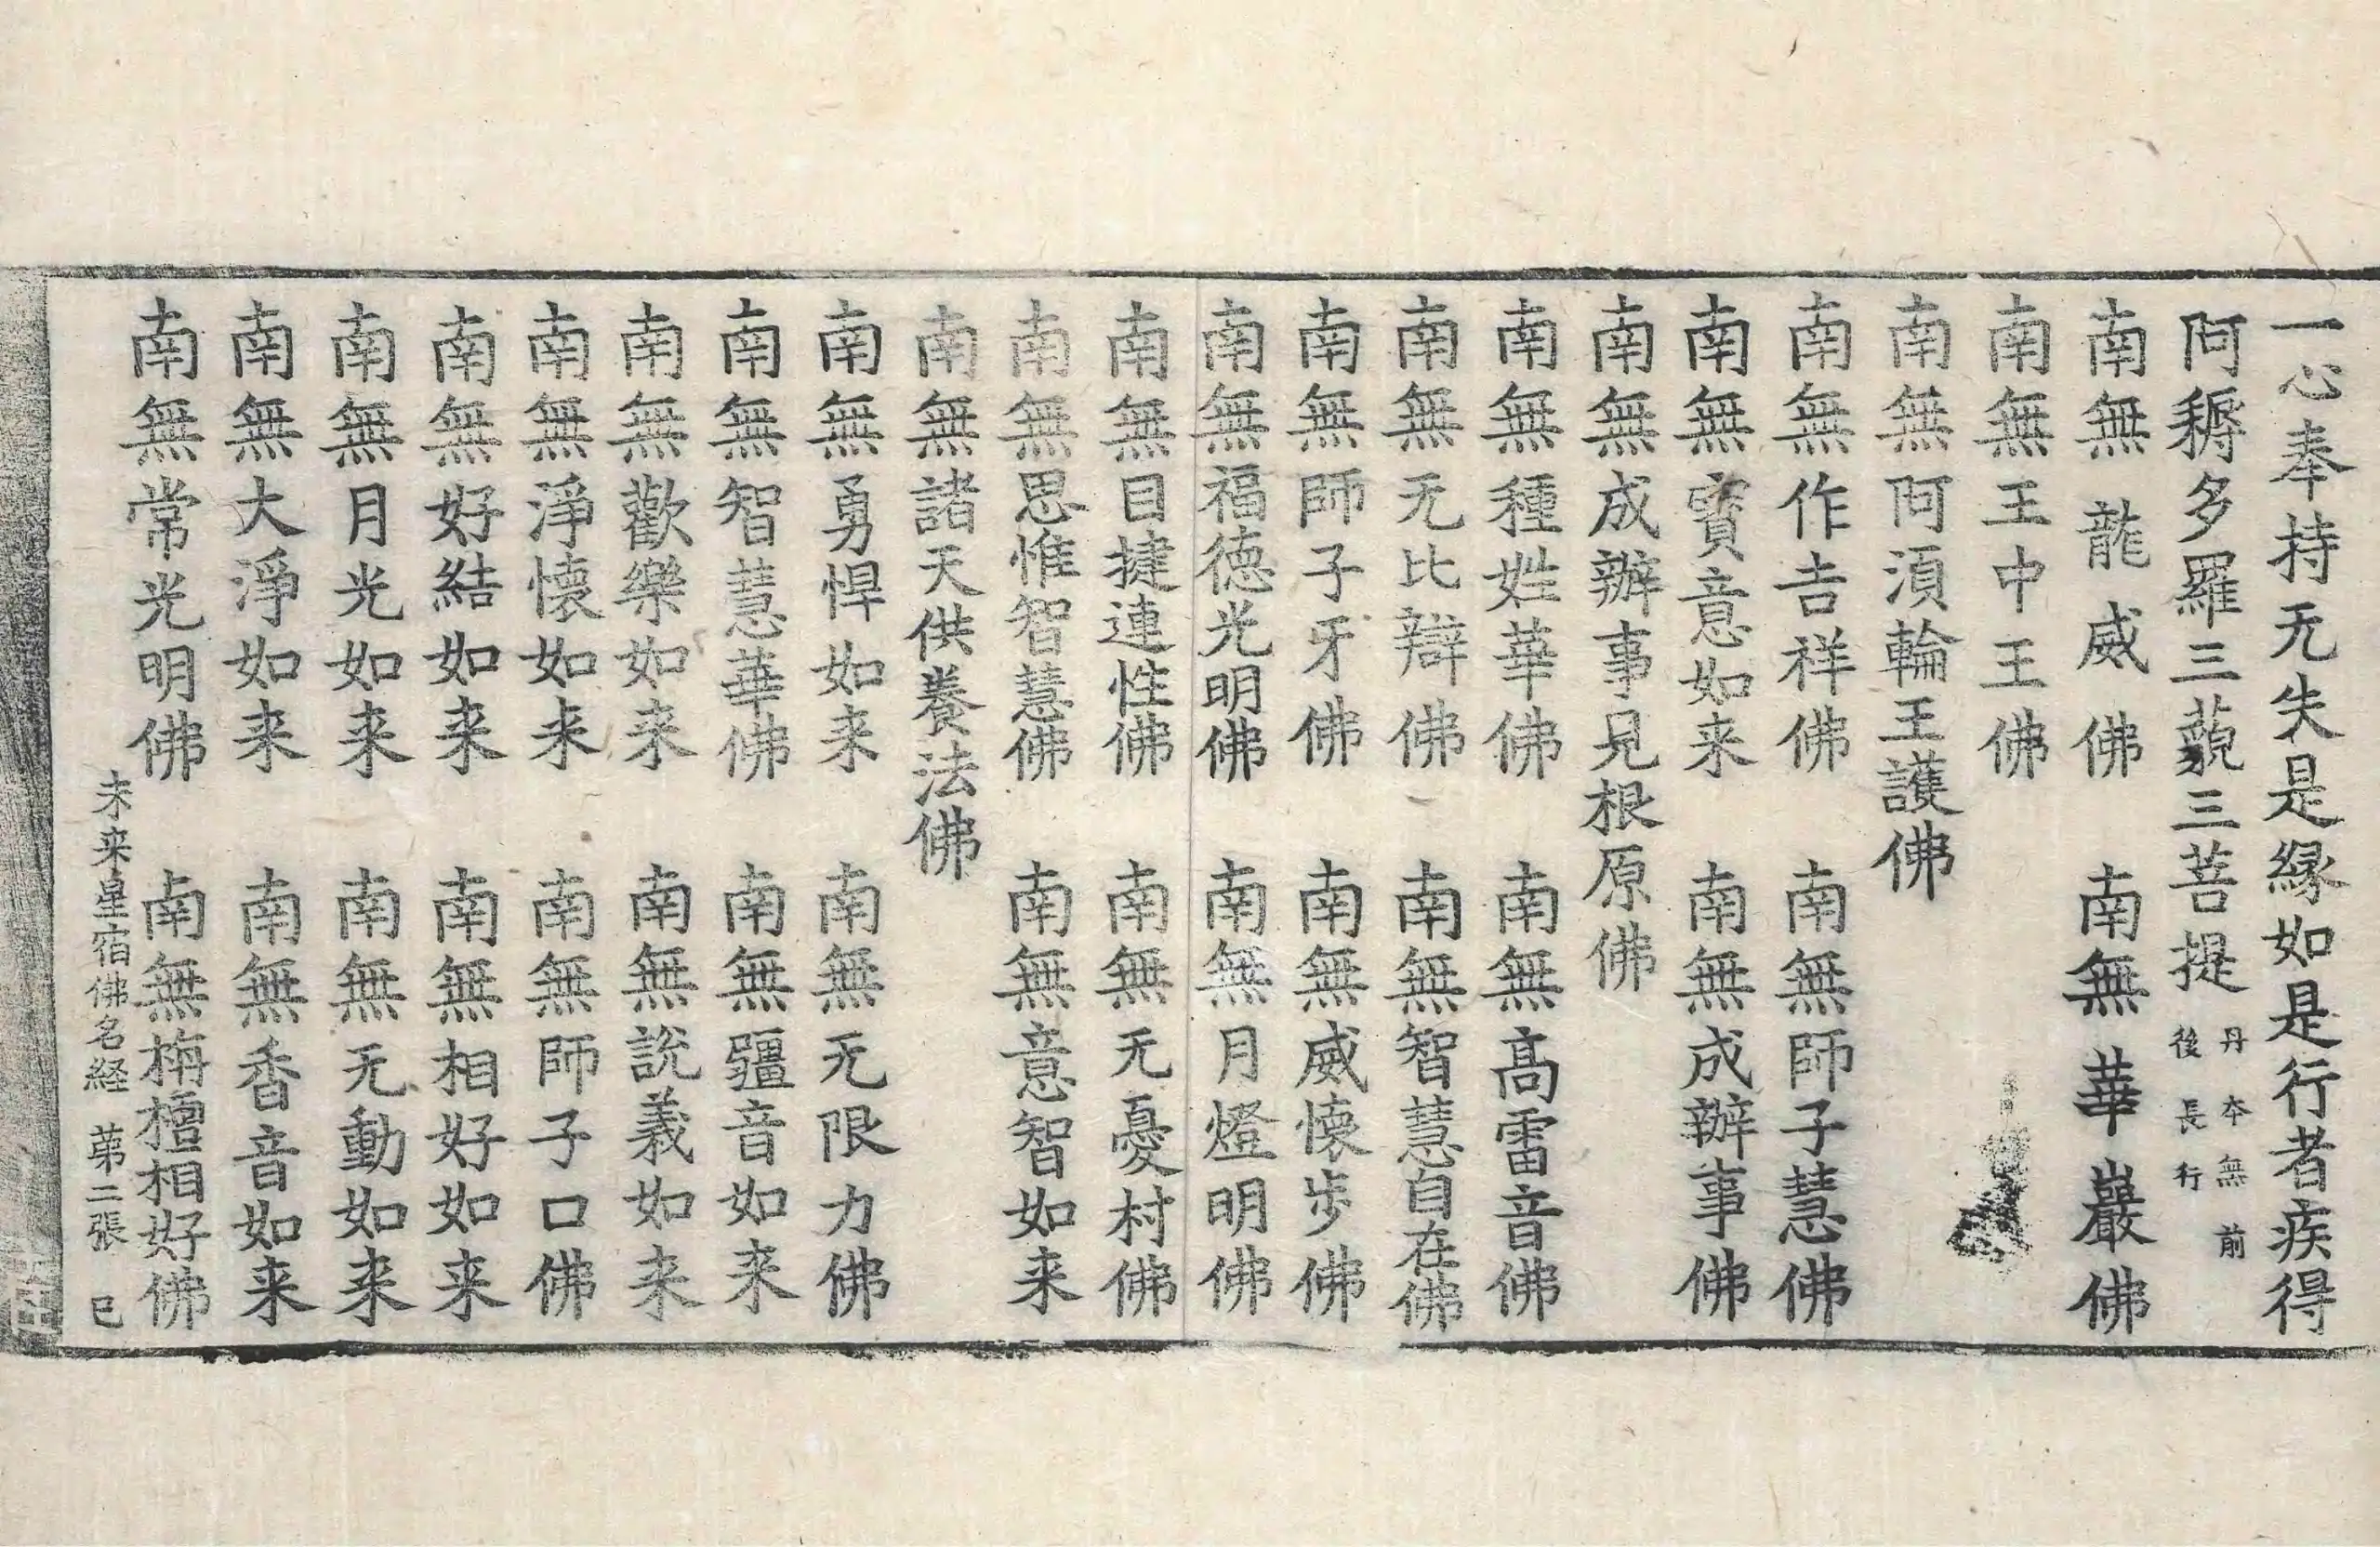 一心奉持无失是緣如是行者疾得
阿耨多羅三藐三菩提 丹本無前後長行
南無龍威佛 南無華巖佛
南無王中王佛
南無阿湏輪王護佛
南無作吉祥佛 南無師子慧佛
南無寶意如来 南無成辦事佛
南無成辦事見根原佛
南無種姓華佛 南無髙雷音佛
南無无比辯佛 南無智慧自在佛
南無師子牙佛 南無威懷步佛
南無福德光明佛 南無月燈明佛
南無目揵連性佛 南無无憂村佛
南無思惟智慧佛 南無意智如来
南無諸天供養法佛
南無勇悍如来 南無无限力佛
南無智慧華佛 南無疆音如来
南無歡樂如来 南無說義如来
南無淨懷如来 南無師子口佛
南無好結如来 南無相好如来
南無月光如来 南無无動如来
南無大淨如来 南無香音如来
南無常光明佛 南無栴檀相好佛
未来星宿佛名経 苐二張 巳